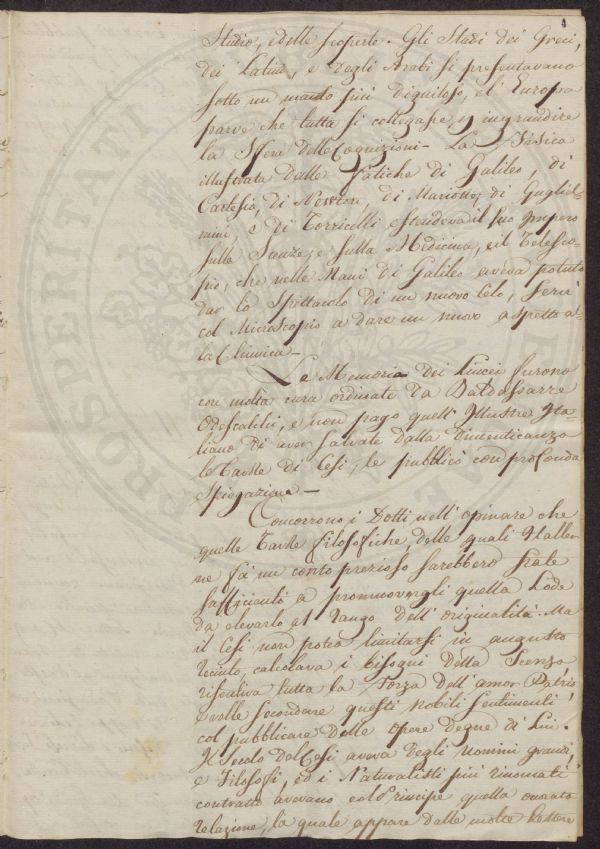 4
Studio, e delle scoperte. Gli Studi dei Greci,
dei Latini, e degli Arabi si presentavano
sotto un manto più dignitoso, e l'Europa
parve che tutta si collegasse in ingrandire
la Sfera delle Cognizioni - La Fisica
illustrata dalle fatiche di Galileo, di
Cartesio, di Newton, di Mariotte, di Gugliel-
mini, e di Torricelli estendeva il suo impero
sulle Scenze, e sulla Medicina, e il Telesco-
pio, che nelle Mani di Galileo aveva potuto
dar lo Spettacolo di un nuovo Celo, servì
col Microscopio a dare un nuovo aspetto al-
la Chimica -
Le Memorie dei Lincei furono
con molta cura ordinate da Baldassarre
Odescalchi, e non pago quell'Illustre Ita-
liano di aver salvate dalla dimenticanza
le Tavole di Cesi, le pubblicò con profonda
spiegazione -
Concorrono i Dotti nell'opinare che
quelle Tavole filosofiche, delle quali Haller
ne fà un conto prezioso sarebbero state
sufficienti a promuovergli quella Lode
da elevarlo al rango dell'originalità. Ma
il Cesi non potea limitarsi in angusto
recinto, calcolava i bisogni della Scenza,
risentiva tutta la forza dell'amor Patrio,
e volle secondare questi nobili sentimenti
col pubblicare delle opere degne di Lui.
Il Secolo del Cesi aveva degli uomini grandi,
e Filosofi, ed i Naturalisti più rinomati
contratto avevano col Principe quella onorata
relazione, la quale appare dalle molte Lettere
PROSPERITATI